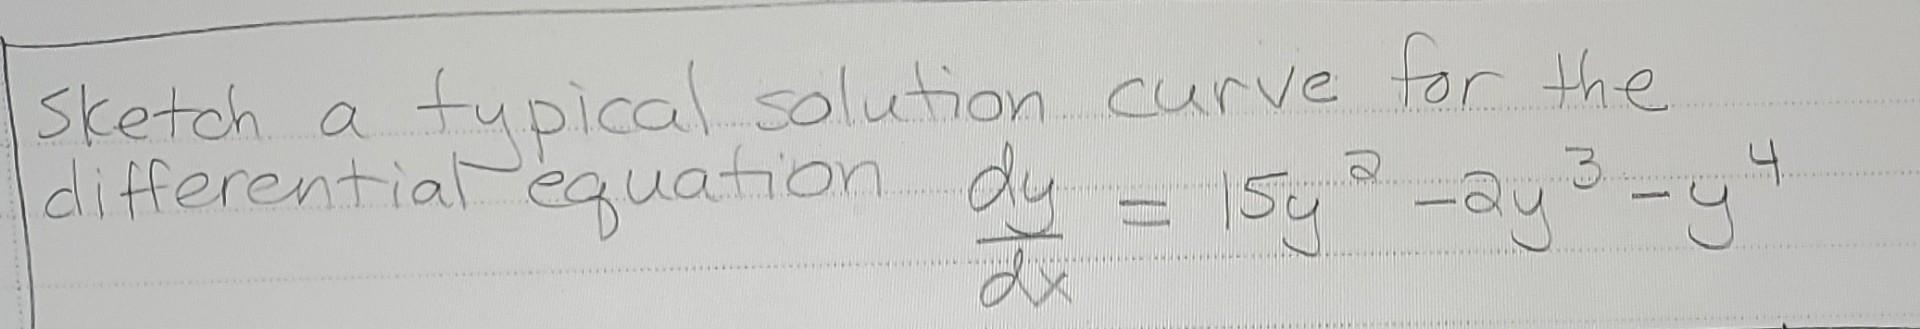 Sketch a typical solution curve for the
differential equation dy/dx = 15y² - 2y³ - y⁴